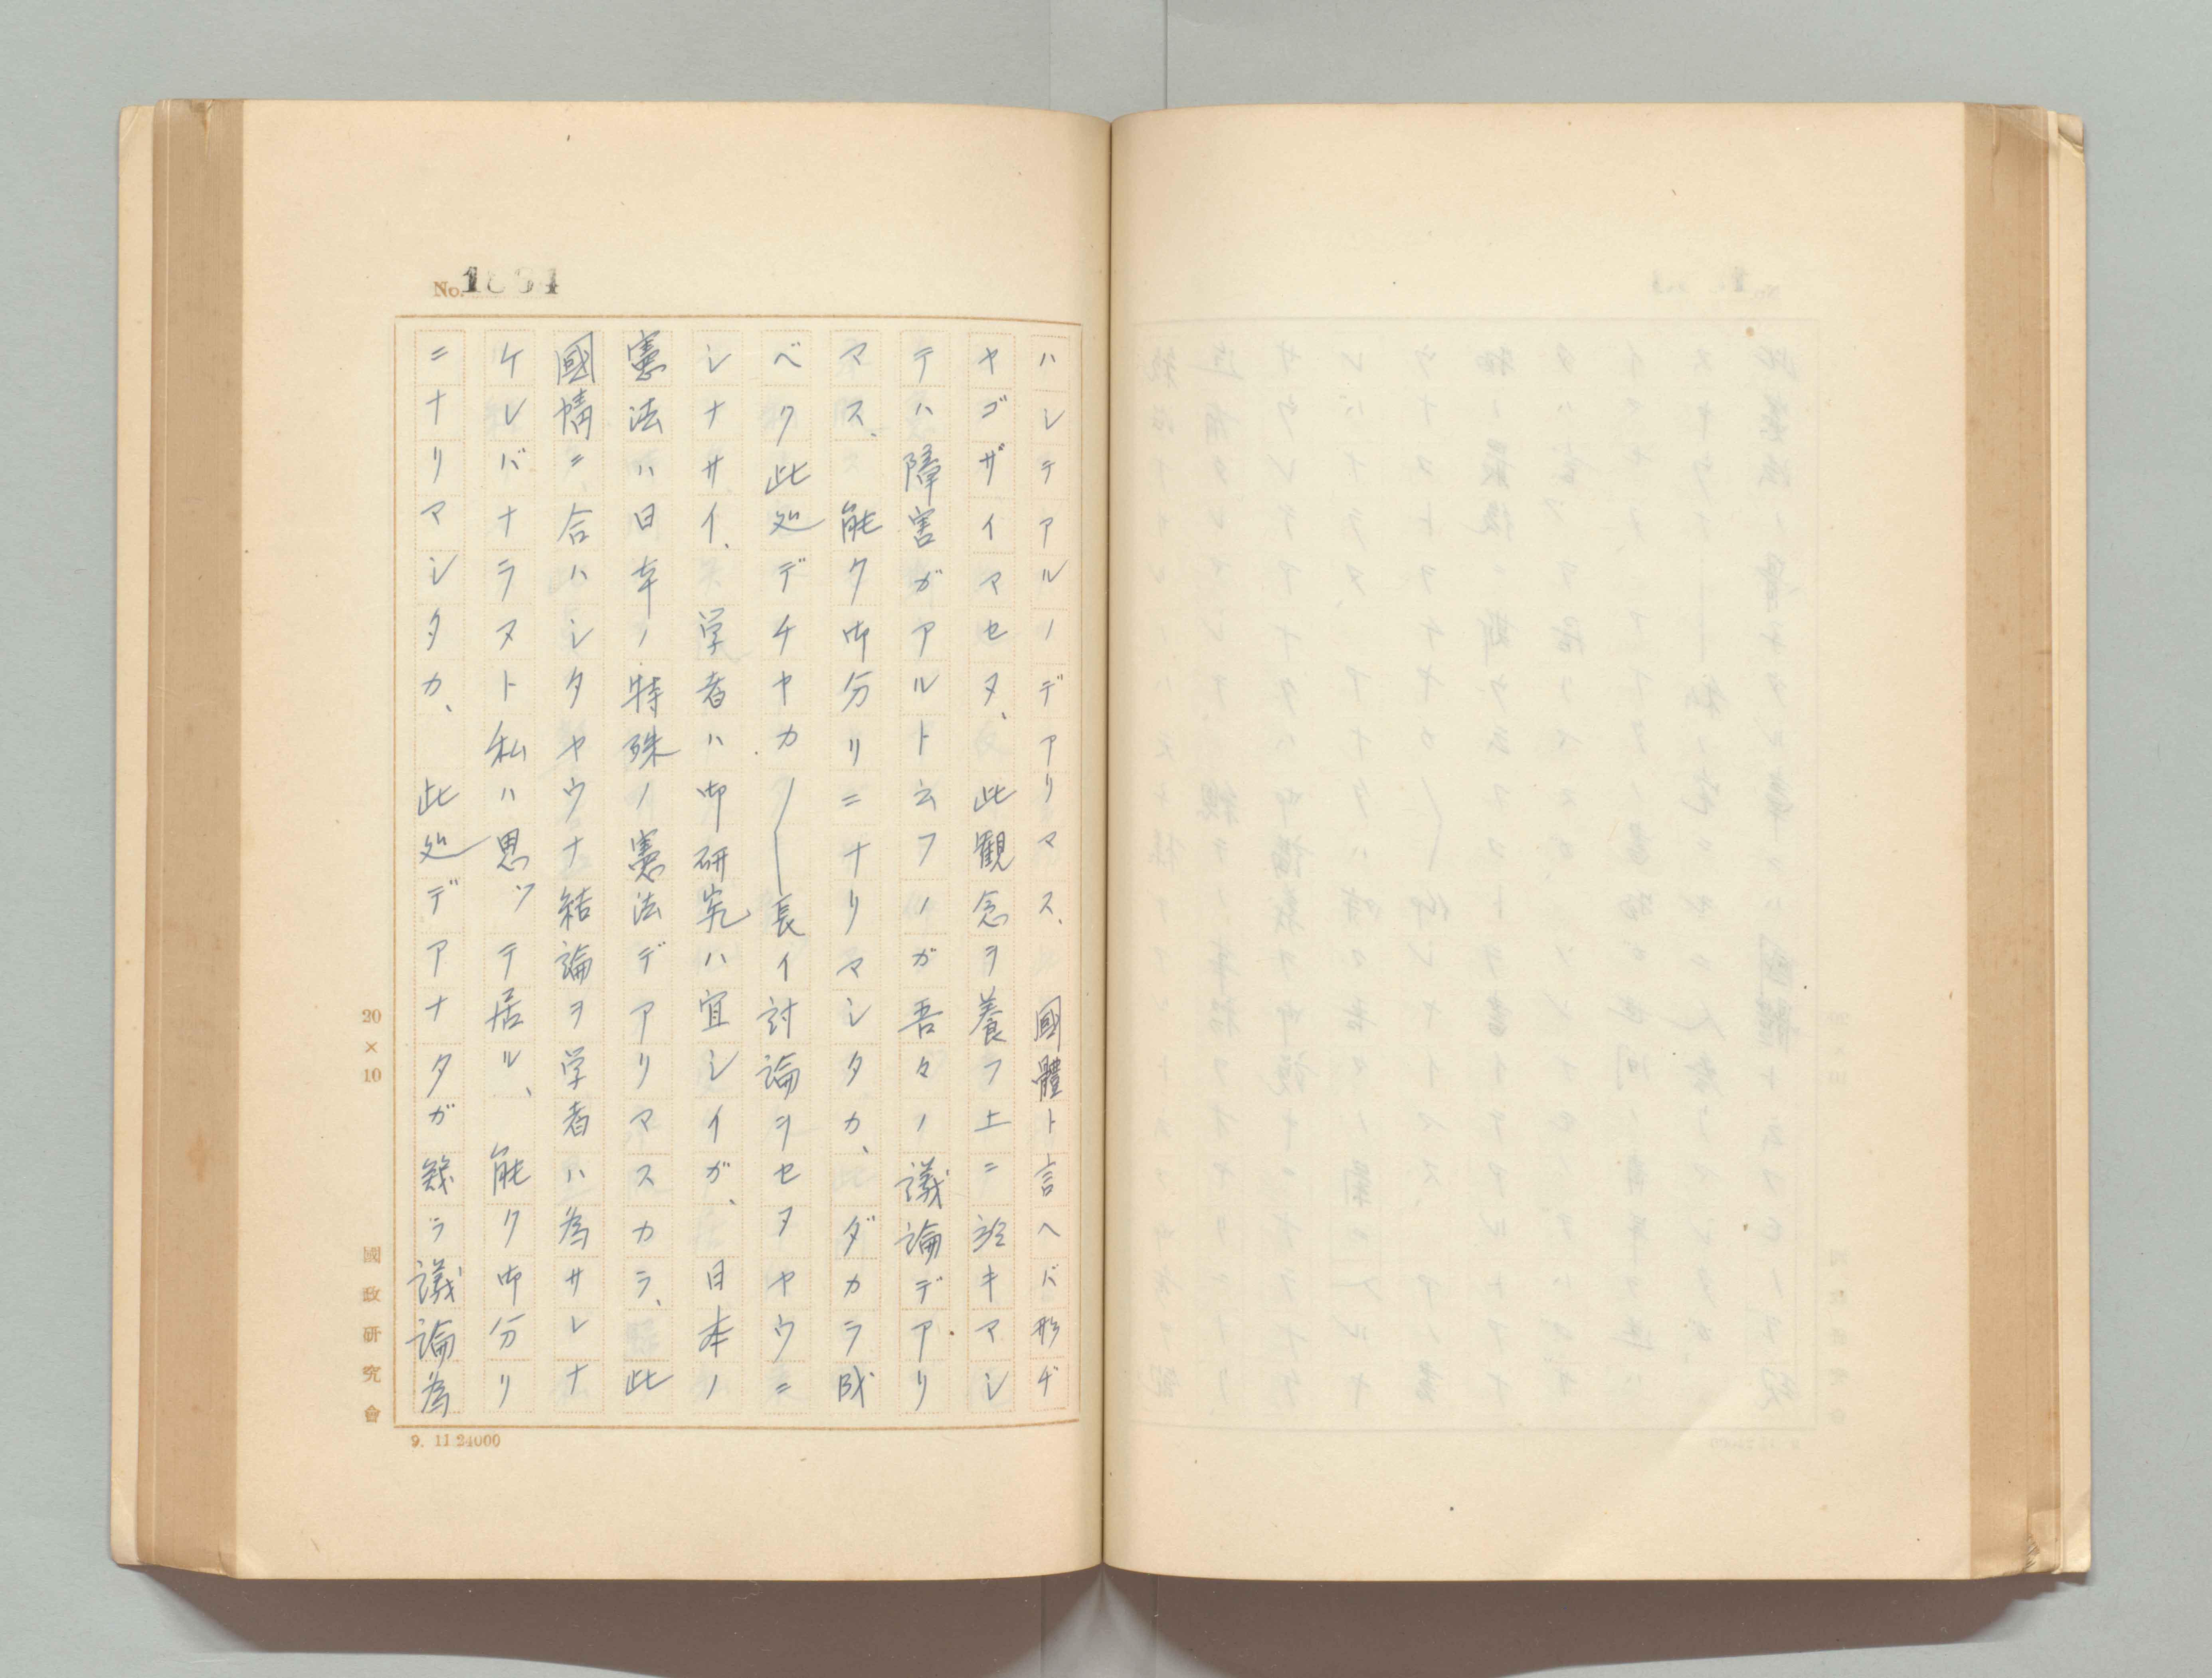 No.
ハシテアルノデアリマス、國體ト言ヘバ形ヂ
ヤゴザイマセヌ、此觀念ヲ養フ上ニ於キマシ
テハ障害ガアルト云フノガ吾々ノ議論デアリ
マス、能ク御分リニナリマシタカ、ダカラ成
ベク此処デチヤカ〱長イ討論ヲセヌヤウニ
シナサイ、学者ハ御研究ハ宜シイガ、日本ノ
憲法ハ日本ノ特殊ノ憲法デアリマスカラ、此
國情ニ合ハシタヤウナ結論ヲ学者ハ為サレナ
ケレバナラヌト私ハ思ツテ居ル、能ク御分リ
ニナリマシタカ、此処デアナタガ幾ラ議論為
20×10 國政研究會
9. 11 24000